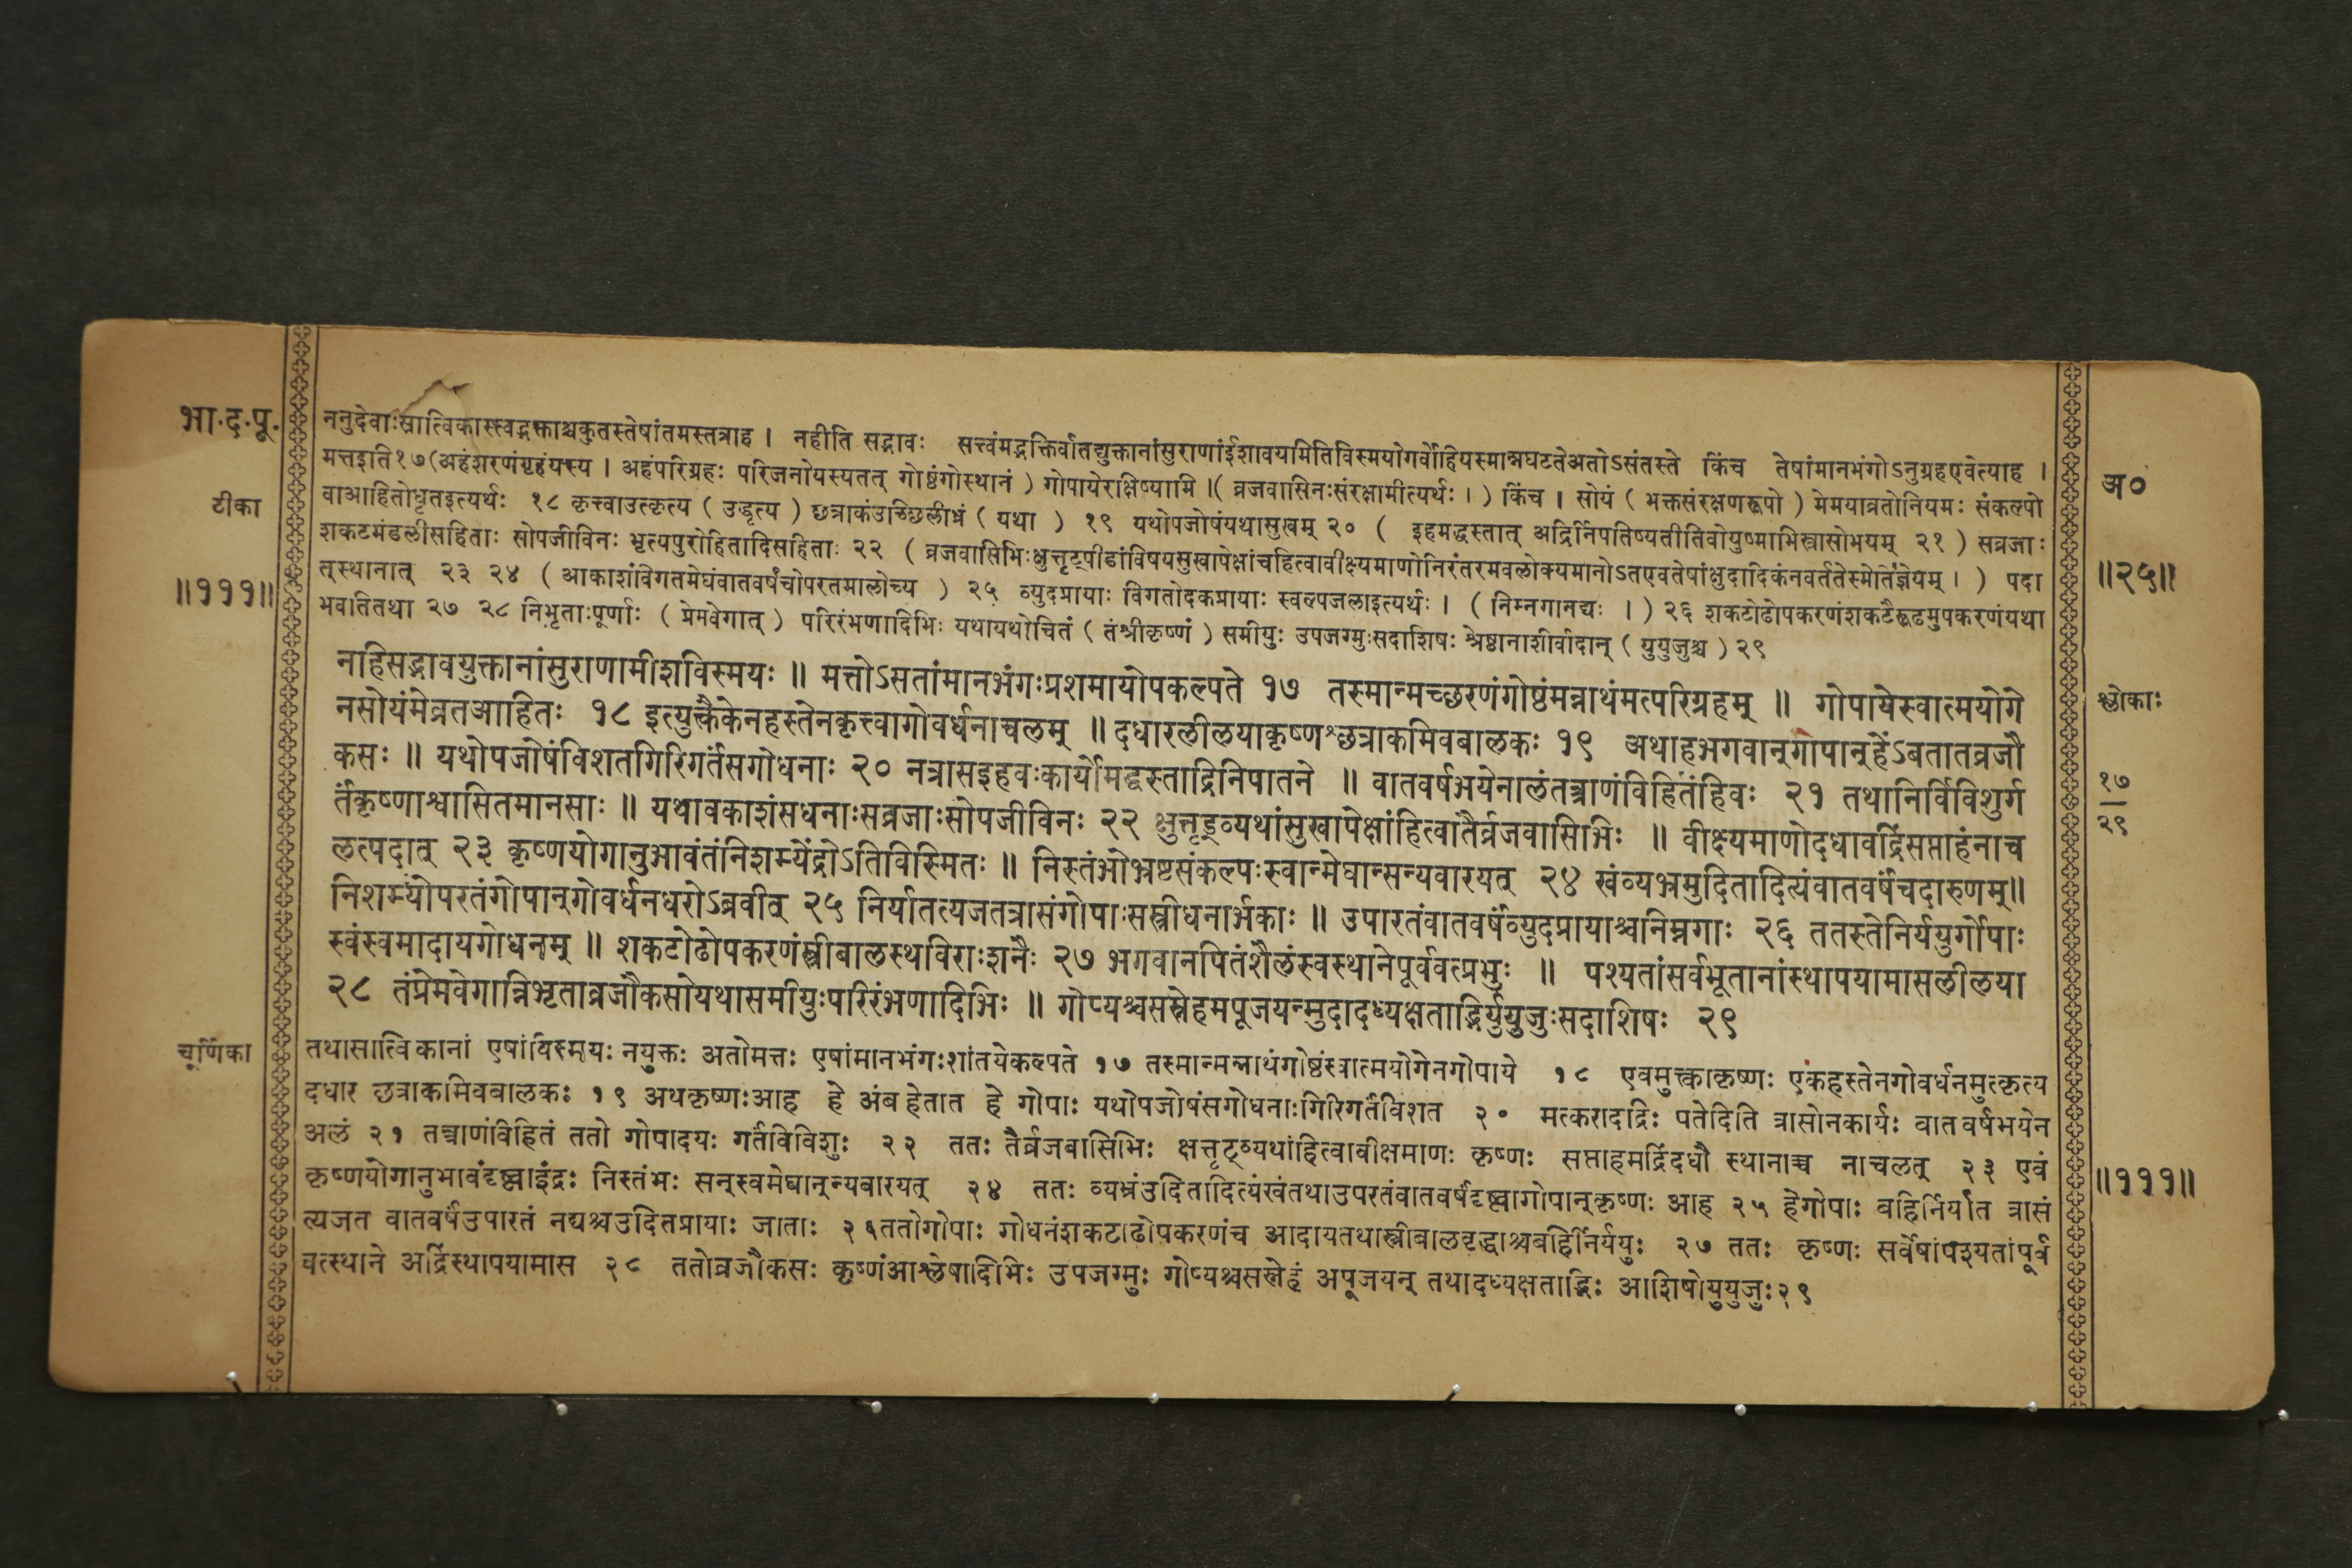 भा.द.पू.
ननुदेवाःसात्विकास्त्वद्भक्ताश्चकुतस्तेषांतमस्तत्राह । नहीति सद्भावः सत्त्वंमद्भक्तिर्वातद्युक्तानांसुराणांईशावयमितिविस्मयोगर्वोहियस्मान्नघटतेअतोऽसंतस्ते किंच तेषांमानभंगोऽनुग्रहएवेत्याह ।
मत्तइति१७(अहंशरणंगृहंयस्य । अहंपरिग्रहः परिजनोयस्यतत् गोष्ठंगोस्थानं ) गोपायेराक्षिष्यामि ।( व्रजवासिनःसंरक्षामीत्यर्थः । ) किंच । सोयं ( भक्तसंरक्षणरूपो ) मेमयाव्रतोनियमः संकल्पो
टीका
वाआहितोधृतइत्यर्थः १८ कृत्त्वाउत्कृत्य ( उद्धृत्य ) छत्राकंउच्छिलीध्रं ( यथा ) १९ यथोपजोषंयथासुखम् २० ( इहमद्धस्तात् अद्रिर्निपतिष्यतीतिवोयुष्माभिस्त्रासोभयम् २१ ) सव्रजाः
शकटमंडलीसहिताः सोपजीविनः भृत्यपुरोहितादिसहिताः २२ ( व्रजवासिभिःक्षुत्तृट्पीडांविषयसुखापेक्षांचहित्वावीक्ष्यमाणोनिरंतरमवलोक्यमानोऽतएवतेषांक्षुदादिकंनवर्ततेस्मोतिज्ञेयम् । ) पदा
॥१११॥
त्स्थानात् २३ २४ ( आकाशंविगतमेघंवातवर्षंचोपरतमालोच्य ) २५ व्युदप्रायाः विगतोदकप्रायाः स्वल्पजलाइत्यर्थः । ( निम्नगानद्यः । ) २६ शकटोढोपकरणंशकटैरूढमुपकरणंयथा
भवतितथा २७ २८ निभृताःपूर्णाः ( प्रेमवेगात् ) परिरंभणादिभिः यथायथोचितं ( तंश्रीकृष्णं ) समीयुः उपजग्मुःसदाशिषः श्रेष्ठानाशीर्वादान् ( युयुजुश्च ) २९
अ०
॥२५॥
नहिसद्भावयुक्तानांसुराणामीशविस्मयः ॥ मत्तोऽसतांमानभंगःप्रशमायोपकल्पते १७ तस्मान्मच्छरणंगोष्ठंमन्नाथंमत्परिग्रहम् ॥ गोपायेस्वात्मयोगे
नसोयंमेव्रतआहितः १८ इत्युक्त्वैकेनहस्तेनकृत्त्वागोवर्धनाचलम् ॥ दधारलीलयाकृष्णश्छत्राकमिवबालकः १९ अथाहभगवान्गोपान्हेंऽबतातव्रजौ
कसः ॥ यथोपजोषंविशतगिरिगर्तंसगोधनाः २० नत्रासइहवःकार्योमद्धस्ताद्रिनिपातने ॥ वातवर्षभयेनालंतत्त्राणंविहितंहिवः २१ तथानिर्विविशुर्ग
र्तंकृष्णाश्वासितमानसाः ॥ यथावकाशंसधनाःसव्रजाःसोपजीविनः २२ क्षुत्तृड्व्यथांसुखापेक्षांहित्वातैर्व्रजवासिभिः ॥ वीक्ष्यमाणोदधावद्रिंसप्ताहंनाच
लत्पदात् २३ कृष्णयोगानुभावंतंनिशम्येंद्रोऽतिविस्मितः ॥ निस्तंभोभ्रष्टसंकल्पःस्वान्मेघान्सन्यवारयत् २४ खंव्यभ्रमुदितादित्यंवातवर्षंचदारुणम्॥
निशम्योपरतंगोपान्गोवर्धनधरोऽब्रवीत् २५ निर्यातत्यजतत्रासंगोपाःसस्त्रीधनार्भकाः ॥ उपारतंवातवर्षंव्युदप्रायाश्चनिम्नगाः २६ ततस्तेनिर्ययुर्गोपाः
स्वंस्वमादायगोधनम् ॥ शकटोढोपकरणंस्त्रीबालस्थविराःशनैः २७ भगवानपितंशैलंस्वस्थानेपूर्ववत्प्रभुः ॥ पश्यतांसर्वभूतानांस्थापयामासलीलया
२८ तंप्रेमवेगान्निभृताव्रजौकसोयथासमीयुःपरिरंभणादिभिः ॥ गोप्यश्चसस्नेहमपूजयन्मुदादध्यक्षताद्भिर्युयुजुःसदाशिषः २९
श्लोकाः
१७
२९
चूर्णिका
तथासात्विकानां एषांविस्मयः नयुक्तः अतोमत्तः एषांमानभंगःशांतयेकल्पते १७ तस्मान्मन्नाथंगोष्ठंस्वात्मयोगेनगोपाये १८ एवमुक्त्वाकृष्णः एकहस्तेनगोवर्धनमुत्कृत्य
दधार छत्राकमिवबालकः १९ अथकृष्णःआह हे अंब हेतात हे गोपाः यथोपजोषंसगोधनाःगिरिगर्तंविशत २० मत्करादद्रिः पतेदिति त्रासोनकार्यः वातवर्षभयेन
अलं २१ तत्त्राणंविहितं ततो गोपादयः गर्तंविविशुः २२ ततः तैर्व्रजवासिभिः क्षत्तृट्व्यथांहित्वावीक्षमाणः कृष्णः सप्ताहमद्रिंदधौ स्थानाच्च नाचलत् २३ एवं
कृष्णयोगानुभावंदृष्ट्वाइंद्रः निस्तंभः सन्स्वमेघान्न्यवारयत् २४ ततः व्यभ्रंउदितादित्यंखंतथाउपरतंवातवर्षंदृष्ट्वागोपान्कृष्णः आह २५ हेगोपाः बहिर्निर्यात त्रासं
त्यजत वातवर्षंउपारतं नद्यश्चउदितप्रायाः जाताः २६ततोगोपाः गोधनंशकटाढोपकरणंच आदायतथास्त्रीबालवृद्धाश्चबहिर्निर्ययुः २७ ततः कृष्णः सर्वेषांपश्यतांपूर्व
वत्स्थाने अद्रिंस्थापयामास २८ ततोव्रजौकसः कृष्णंआश्लेषादिभिः उपजग्मुः गोप्यश्चसस्नेहं अपूजयन् तथादध्यक्षताद्भिः आशिषोयुयुजुः२९
॥१११॥